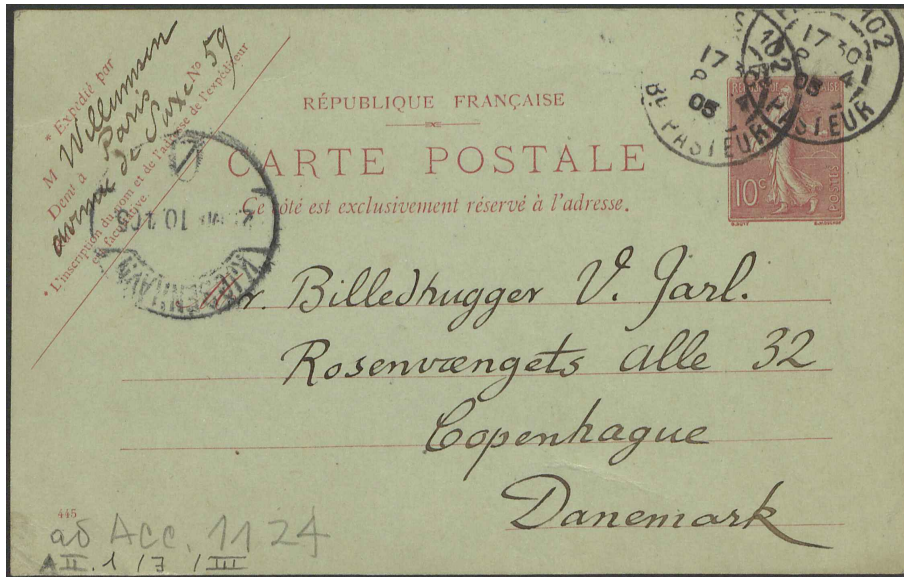 * Expédié par
M Willumsen
Demt à Paris
avenue de Saxe No 59
* L'inscription du nom et de l'adresse de l'expéditeur
est facultative.
RÉPUBLIQUE FRANÇAISE
CARTE POSTALE
Ce côté est exclusivement réservé à l'adresse.
102
17 30
4
05
PASTEUR
102
17 30
05
Bd PASTEUR
10c
POSTE
KJØBENHAVN
Hr. Billedhugger V. Jarl.
Rosenvængets alle 32
Copenhague
Danemark
445
ad Acc. 1124
AII.1/3/III